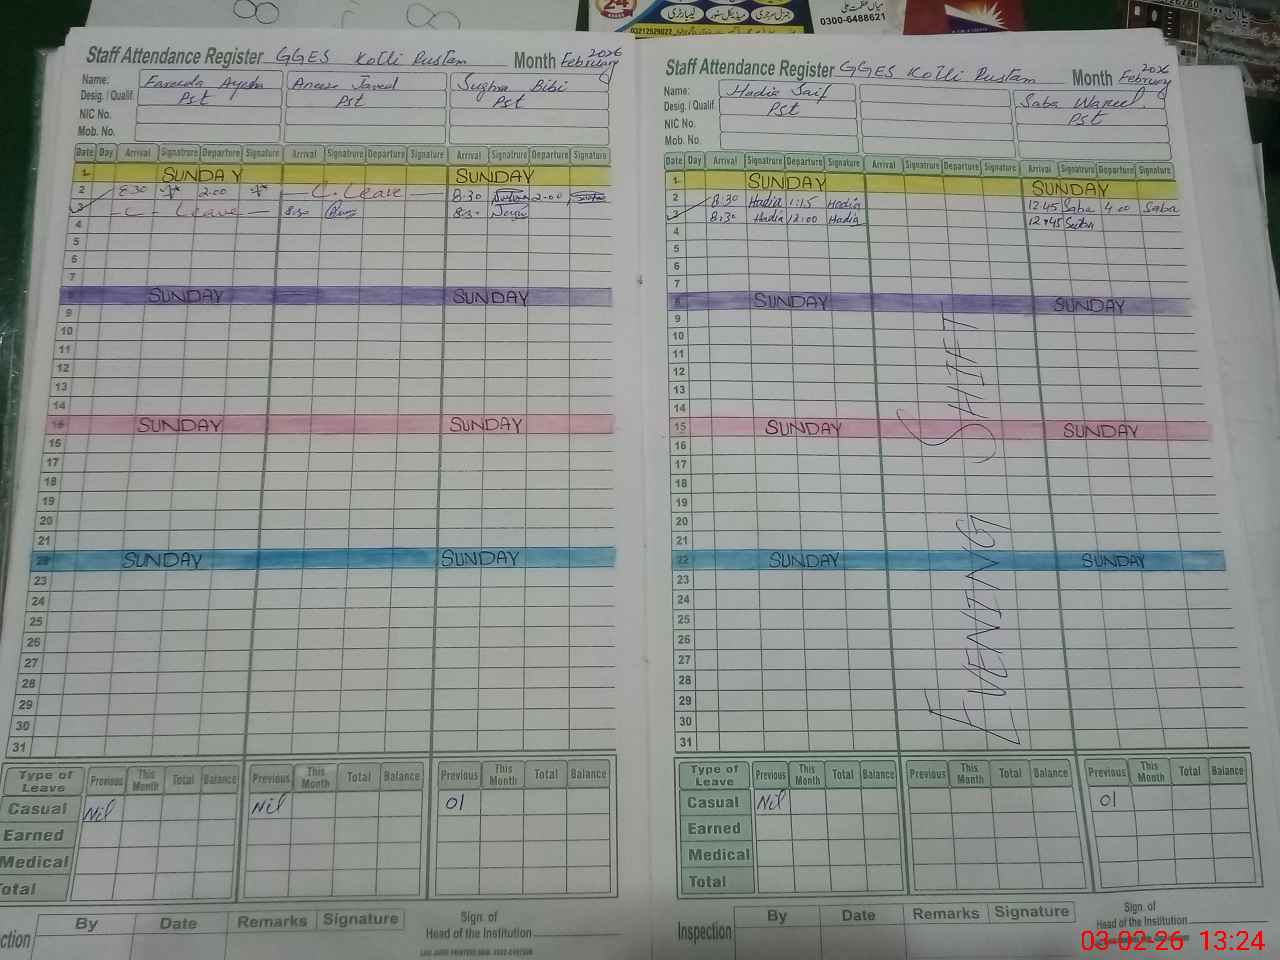 24
HOURS
جنرل سرجری میڈیکل سٹور لیبارٹری
0300-6488621
03212529022
Staff Attendance Register GGES Kotli Rustam Month February 2026
Name: Fareeda Ayesha Aneeza Javed Sughra Bibi
Desig. / Qualif. Pst Pst Pst
NIC No.
Mob. No.
Date Day Arrival Signatrure Departure Signature Arrival Signatrure Departure Signature Arrival Signatrure Departure Signature
1 SUNDAY SUNDAY
2 8:30 2:00 C. Leave 8:30 2:00
3 C- Leave 8:30 8:30
4
5
6
7
8 SUNDAY SUNDAY
9
10
11
12
13
14
SUNDAY SUNDAY
15
17
18
19
20
21
SUNDAY SUNDAY
23
24
25
26
27
28
29
30
31
Type of Leave Previous This Month Total Balance Previous This Month Total Balance Previous This Month Total Balance
Casual Nil Nil 01
Earned
Medical
Total
By Date Remarks Signature
Sign. of
Head of the Institution
Staff Attendance Register GGES Kotli Rustam Month February 2026
Name: Hadia Saif Saba Waheed
Desig. / Qualif. Pst Pst
NIC No.
Mob. No.
Date Day Arrival Signatrure Departure Signature Arrival Signatrure Departure Signature Arrival Signatrure Departure Signature
1 SUNDAY SUNDAY
2 8:30 Hadia 1:15 Hadia 12:45 Saba 4:00 Saba
3 8:30 Hadia 12:00 Hadia 12:45 Saba
4
5
6
7
8 SUNDAY SUNDAY
9
10
11
12
13
14
15 SUNDAY SUNDAY
16
17
18
19
20
21
22 SUNDAY SUNDAY
23
24
25
26
27
28
29
30
31
EVENING SHIFT
Type of Leave Previous This Month Total Balance Previous This Month Total Balance Previous This Month Total Balance
Casual Nil 01
Earned
Medical
Total
Inspection By Date Remarks Signature
Sign. of
Head of the Institution
03-02-26 13:24